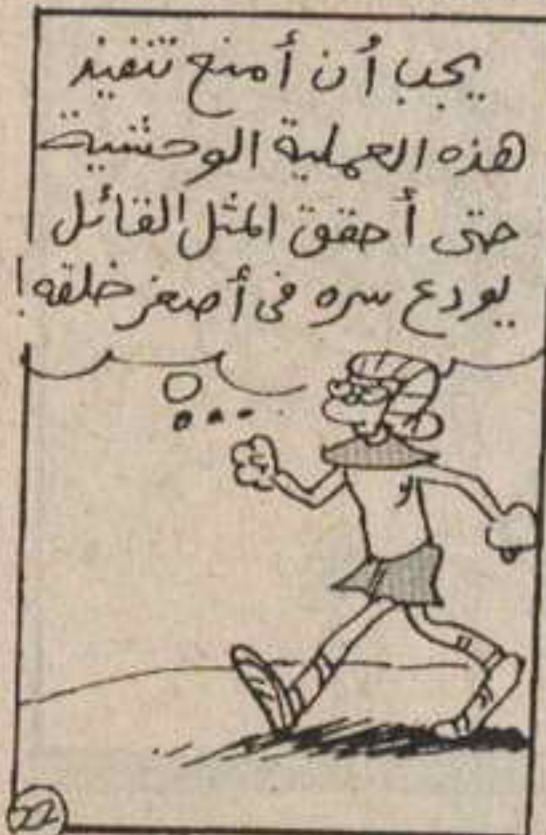 يجب أن أمنع تنفيذ
هذه العملية الوحشية
حتى أحقق المثل القائل
يودع سره فى أصغر خلقه!
22